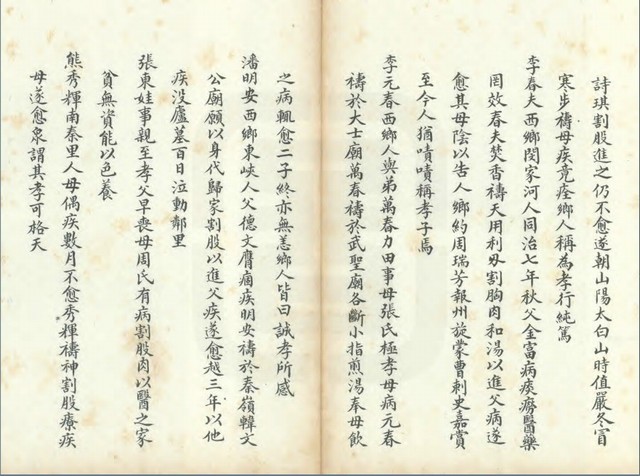 詩琪割股進之仍不愈遂朝山陽太白山時值嚴冬冒
寒步禱母疾竟痊鄉人稱為孝行純篤
李春夫西鄉閔家河人同治七年秋父金富病痰癆醫藥
罔效春夫焚香禱天用利刃割胸肉和湯以進父病遂
愈其母陰以告人鄉約周瑞芳報州旋蒙曹刺史嘉賞
至今人猶嘖嘖稱孝子焉
李元春西鄉人與弟萬春力田事母張氏極孝母病元春
禱於大士廟萬春禱於武聖廟各斷小指煎湯奉母飲
之病輒愈二子終亦無恙鄉人皆曰誠孝所感
潘明安西鄉東峽人父德文膺痼疾明安禱於秦嶺韓文
公廟願以身代歸家割股以進父疾遂愈越三年以他
疾没廬墓百日泣動鄰里
張東娃事親至孝父早喪母周氏有病割股肉以醫之家
貧無資能以色養
熊秀輝南秦里人母偶疾數月不愈秀輝禱神割股療疾
母遂愈泉謂其孝可格天